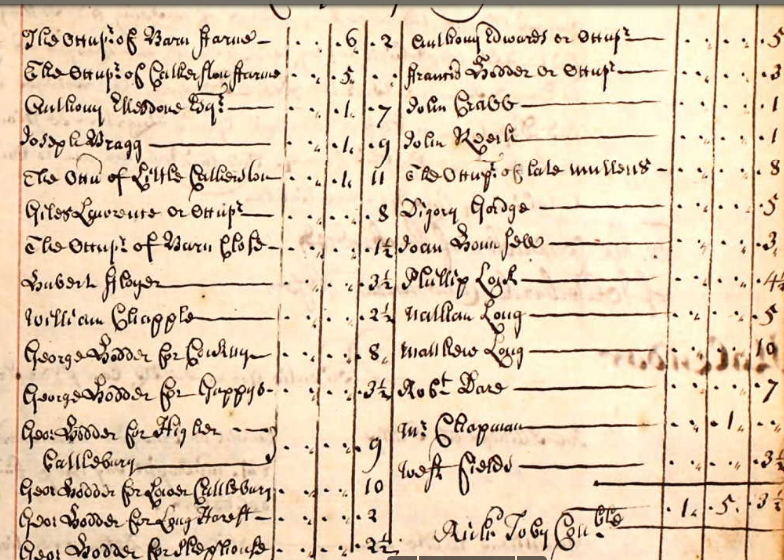 The Occup.r of Barn ffarme - . . 6 . 2
The Occup.r of Catherston ffarme . . 5 . .
Anthony Ellesdone Esq.r . . 1 . 7
Joseph Bragg . . 1 . 9
The Occu of Little Catherston . . 1 . 11
Giles Lawrence or Occup.r . . . 8
The Occup.r of Barn Close . . . 1½
Hubert ffloyer . . . 3½
William Chapple . . . 2½
George Bodder for . . . 8
George Bodder for . . . 3½
Geor Bodder for Higher
Cattlebury . . . 9
Geor Bodder for Lower Cattlebury . . . 10
Geor Bodder for Long . . . 2
Geor Bodder for . . . 2½
Anthony Edwards or Occup.r . . . 5
Francis Bodder or Occup.r . . . 3
John Crabb . . . 1
John . . . 1
The Occup.r of late Mullens . . . 8
Digory Hordge . . . 5
Joan . . . 3
Phillip . . . 4½
Nathan Long . . . 5
Matthew Long . . . 10
Rob.t Dare . . . 7
M.r Chapman . . 1 . .
West Fields . . . 3½
. 1 . 5 . 3½
Rich.d Toby Con.ble